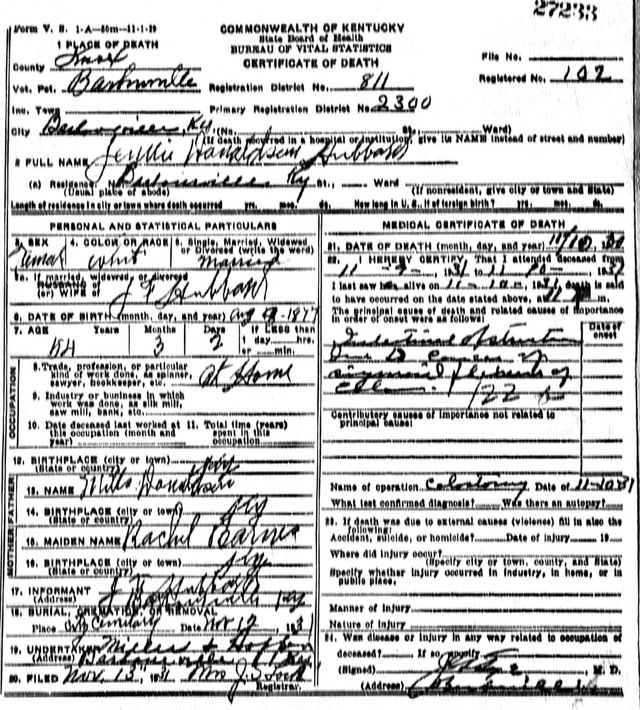 27233
Form V. S. 1-A-50m-11-1-29
COMMONWEALTH OF KENTUCKY
State Board of Health
BUREAU OF VITAL STATISTICS
CERTIFICATE OF DEATH
1 PLACE OF DEATH
County Knox
File No.
Vot. Pct. Barbourville Registration District No. 811 Registered No. 102
Inc. Town Primary Registration District No. 2300
City Barbourville, Ky. (No. St. Ward)
(If death occurred in a hospital or institution, give its NAME instead of street and number)
2 FULL NAME Donaldson Hubbard
(a) Residence. No. Barbourville Ky St., Ward
(Usual place of abode) (If nonresident, give city or town and State)
Length of residence in city or town where death occurred yrs. mos. ds. How long in U. S., if of foreign birth? yrs. mos. ds.
PERSONAL AND STATISTICAL PARTICULARS
3. SEX 4. COLOR OR RACE 5. Single, Married, Widowed or Divorced (write the word)
Female white married
5a. If married, widowed, or divorced
HUSBAND of
(or) WIFE of J Hubbard
6. DATE OF BIRTH (month, day, and year) Aug 1877
7. AGE Years Months Days If LESS than 1 day, hrs. or min.
54 3 2
OCCUPATION
8. Trade, profession, or particular kind of work done, as spinner, sawyer, bookkeeper, etc. At Home
9. Industry or business in which work was done, as silk mill, saw mill, bank, etc.
10. Date deceased last worked at this occupation (month and year)
11. Total time (years) spent in this occupation
12. BIRTHPLACE (city or town)
(State or country) Ky
MOTHER FATHER
13. NAME Mills Donaldson
14. BIRTHPLACE (city or town)
(State or country) Ky
15. MAIDEN NAME Rachel Barnes
16. BIRTHPLACE (city or town)
(State or country) Ky
17. INFORMANT J Hubbard
(Address) Barbourville Ky
18. BURIAL, CREMATION, OR REMOVAL
Place City Cemetery Date Nov 12, 1931
19. UNDERTAKER Hopper
(Address) Barbourville Ky
20. FILED Nov. 13, 1931 Mrs J.
Registrar.
MEDICAL CERTIFICATE OF DEATH
21. DATE OF DEATH (month, day, and year) 11/10
22. I HEREBY CERTIFY, That I attended deceased from
11-9-1931 to 11-10-1931
I last saw alive on 11-10-1931, death is said
to have occurred on the date stated above, at m.
The principal cause of death and related causes of importance in order of onset were as follows:
Date of onset
Intestinal obstruction
due to Cancer of
sigmoid flexure of
colon 122
Contributory causes of importance not related to principal cause:
Name of operation Colostomy Date of 11-10-31
What test confirmed diagnosis? Was there an autopsy?
23. If death was due to external causes (violence) fill in also the following:
Accident, suicide, or homicide? Date of injury 19
Where did injury occur?
(Specify city or town, county, and State)
Specify whether injury occurred in industry, in home, or in public place.
Manner of injury
Nature of injury
24. Was disease or injury in any way related to occupation of deceased? If so, specify
(Signed) M. D.
(Address) Barbourville